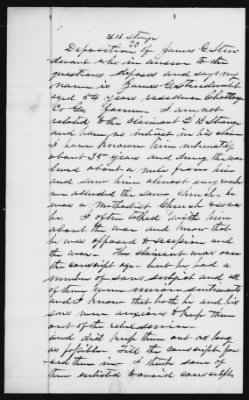 D B Strange
20
Deposition of James G
who in answer to the
questions deposes and says my
name is James G
aged 54 years residence Chattooga
Co Ga farmer. I am not
related to the Claimant D B Strange
and have no interest in his claim
I have known him intimately
about 35 years and during the war
lived about a mile from him
and saw him almost every week
we attended the same Church he
was a Methodist Church
I often talked with him
about the war and know that
he was opposed to secession and
the war. The claimant was over
the conscript age but he had a
number of sons subject and all
of them were union in sentiments
and I know that both he and his
sons were anxious to keep them
out of the rebel service
and did keep them out as long
as possible till the conscript
them in. I think some of
them enlisted to avoid conscription